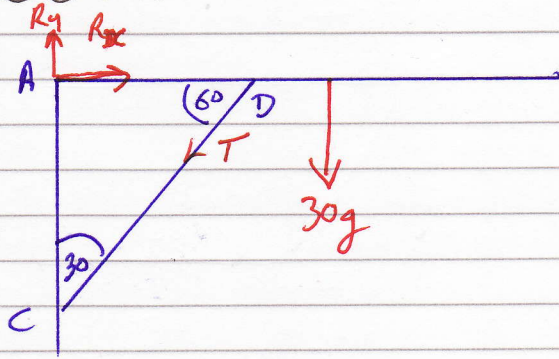 Ry
Rx
A
60
D
T
30g
30
C